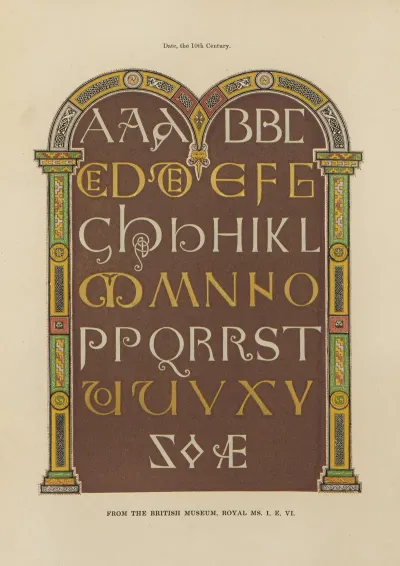 Date, the 10th Century.
AAA BBC
EDE EFG
GhhHIKL
MMNNO
PPQRRST
UUVXY
ZOÆ
FROM THE BRITISH MUSEUM, ROYAL MS. I. E. VI.